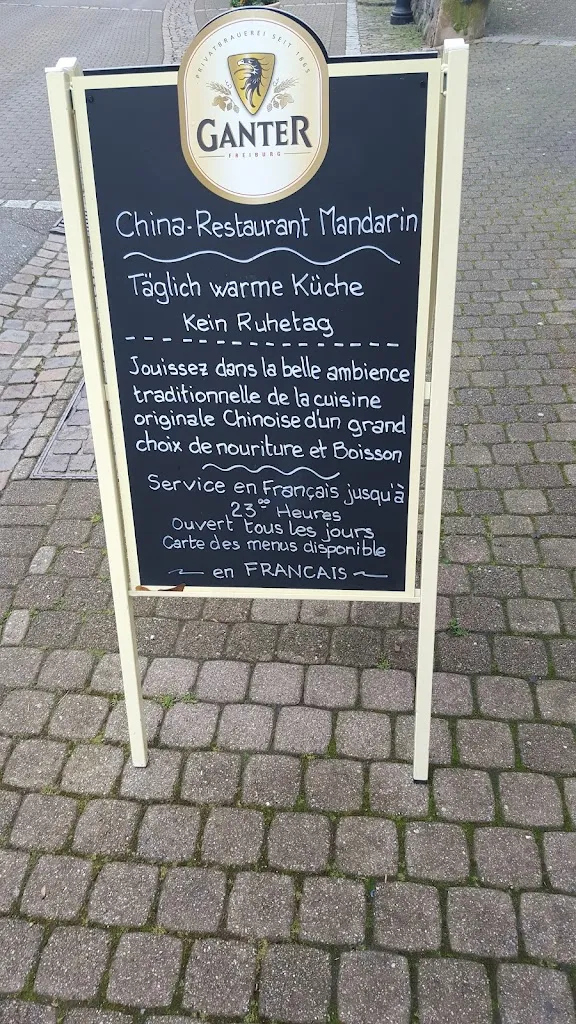 PRIVATBRAUEREI SEIT 1865
GANTER
FREIBURG
China-Restaurant Mandarin
Täglich warme Küche
Kein Ruhetag
Jouissez dans la belle ambience
traditionnelle de la cuisine
originale Chinoise d'un grand
choix de nouriture et Boisson
Service en Français jusqu'à
23⁰⁰ Heures
Ouvert tous les jours
Carte des menus disponible
en FRANCAIS